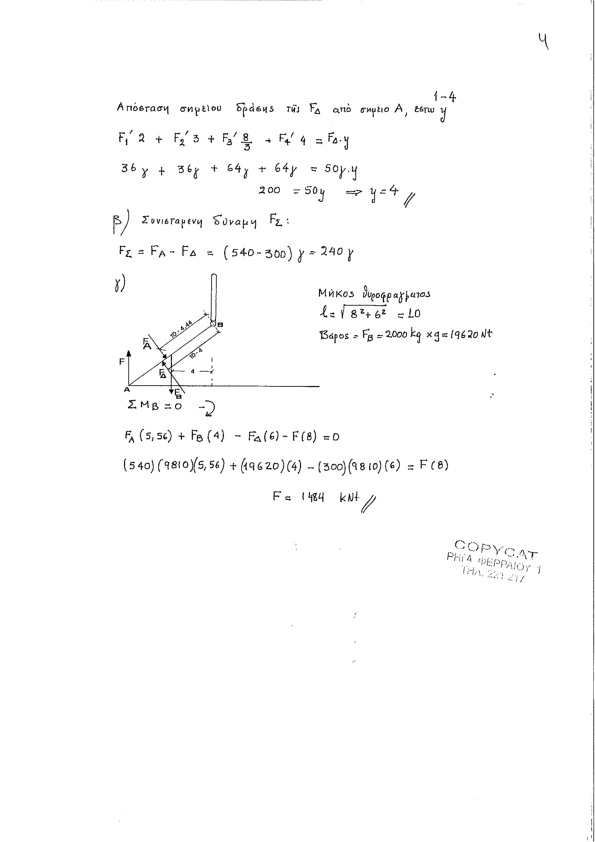 4
1-4
Απόσταση σημείου δράσης της F_Δ από σημείο Α, έστω y
F₁' 2 + F₂' 3 + F₃' 8/3 + F₄' 4 = F_Δ·y
36γ + 36γ + 64γ + 64γ = 50γ·y
200 = 50y ⟹ y = 4 //
β) Συνισταμενη δύναμη F_Σ :
F_Σ = F_A - F_Δ = (540-300) γ = 240 γ
γ)
Μηκος θυροφραγματος
l = √8²+6² = 10
Βαρος = F_B = 2000 kg × g = 19620 Nt
10-4,44
B
F_A
10-4
F
F_Δ
4
A
F_B
Σ M_B = 0
F_A (5,56) + F_B (4) - F_Δ (6) - F (8) = 0
(540)(9810)(5,56) + (19620)(4) - (300)(9810)(6) = F(8)
F = 1484 kNt //
COPYCAT
ΡΗΓΑ ΦΕΡΡΑΙΟΥ 1
ΤΗΛ. 221